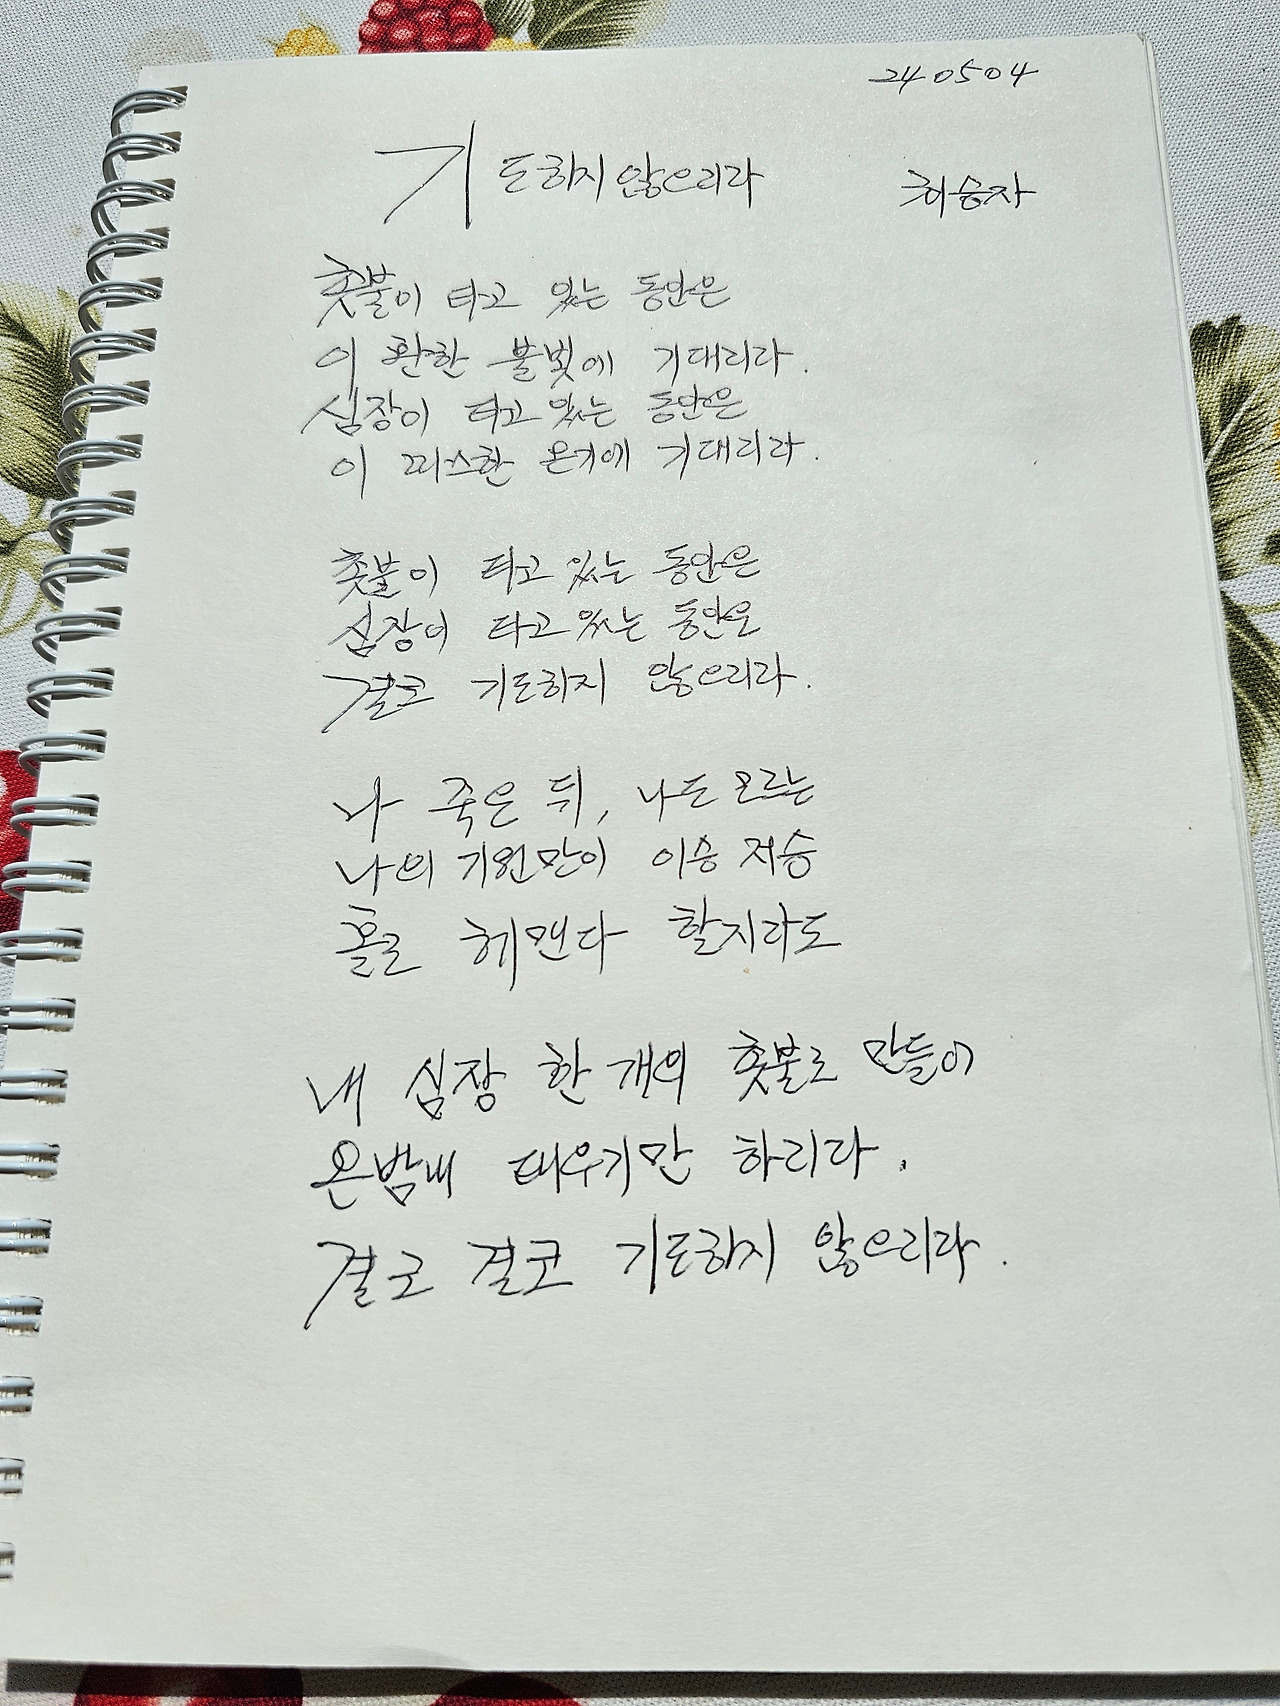 240504
기도하지 않으리라
최승자
촛불이 타고 있는 동안은
이 환한 불빛에 기대리라.
심장이 타고 있는 동안은
이 따스한 온기에 기대리라.
촛불이 타고 있는 동안은
심장이 타고 있는 동안은
결코 기도하지 않으리라.
나 죽은 뒤, 나도 모르는
나의 기원만이 이승 저승
홀로 헤맨다 할지라도
내 심장 한 개의 촛불로 만들어
온밤내 태우기만 하리라.
결코 결코 기도하지 않으리라.